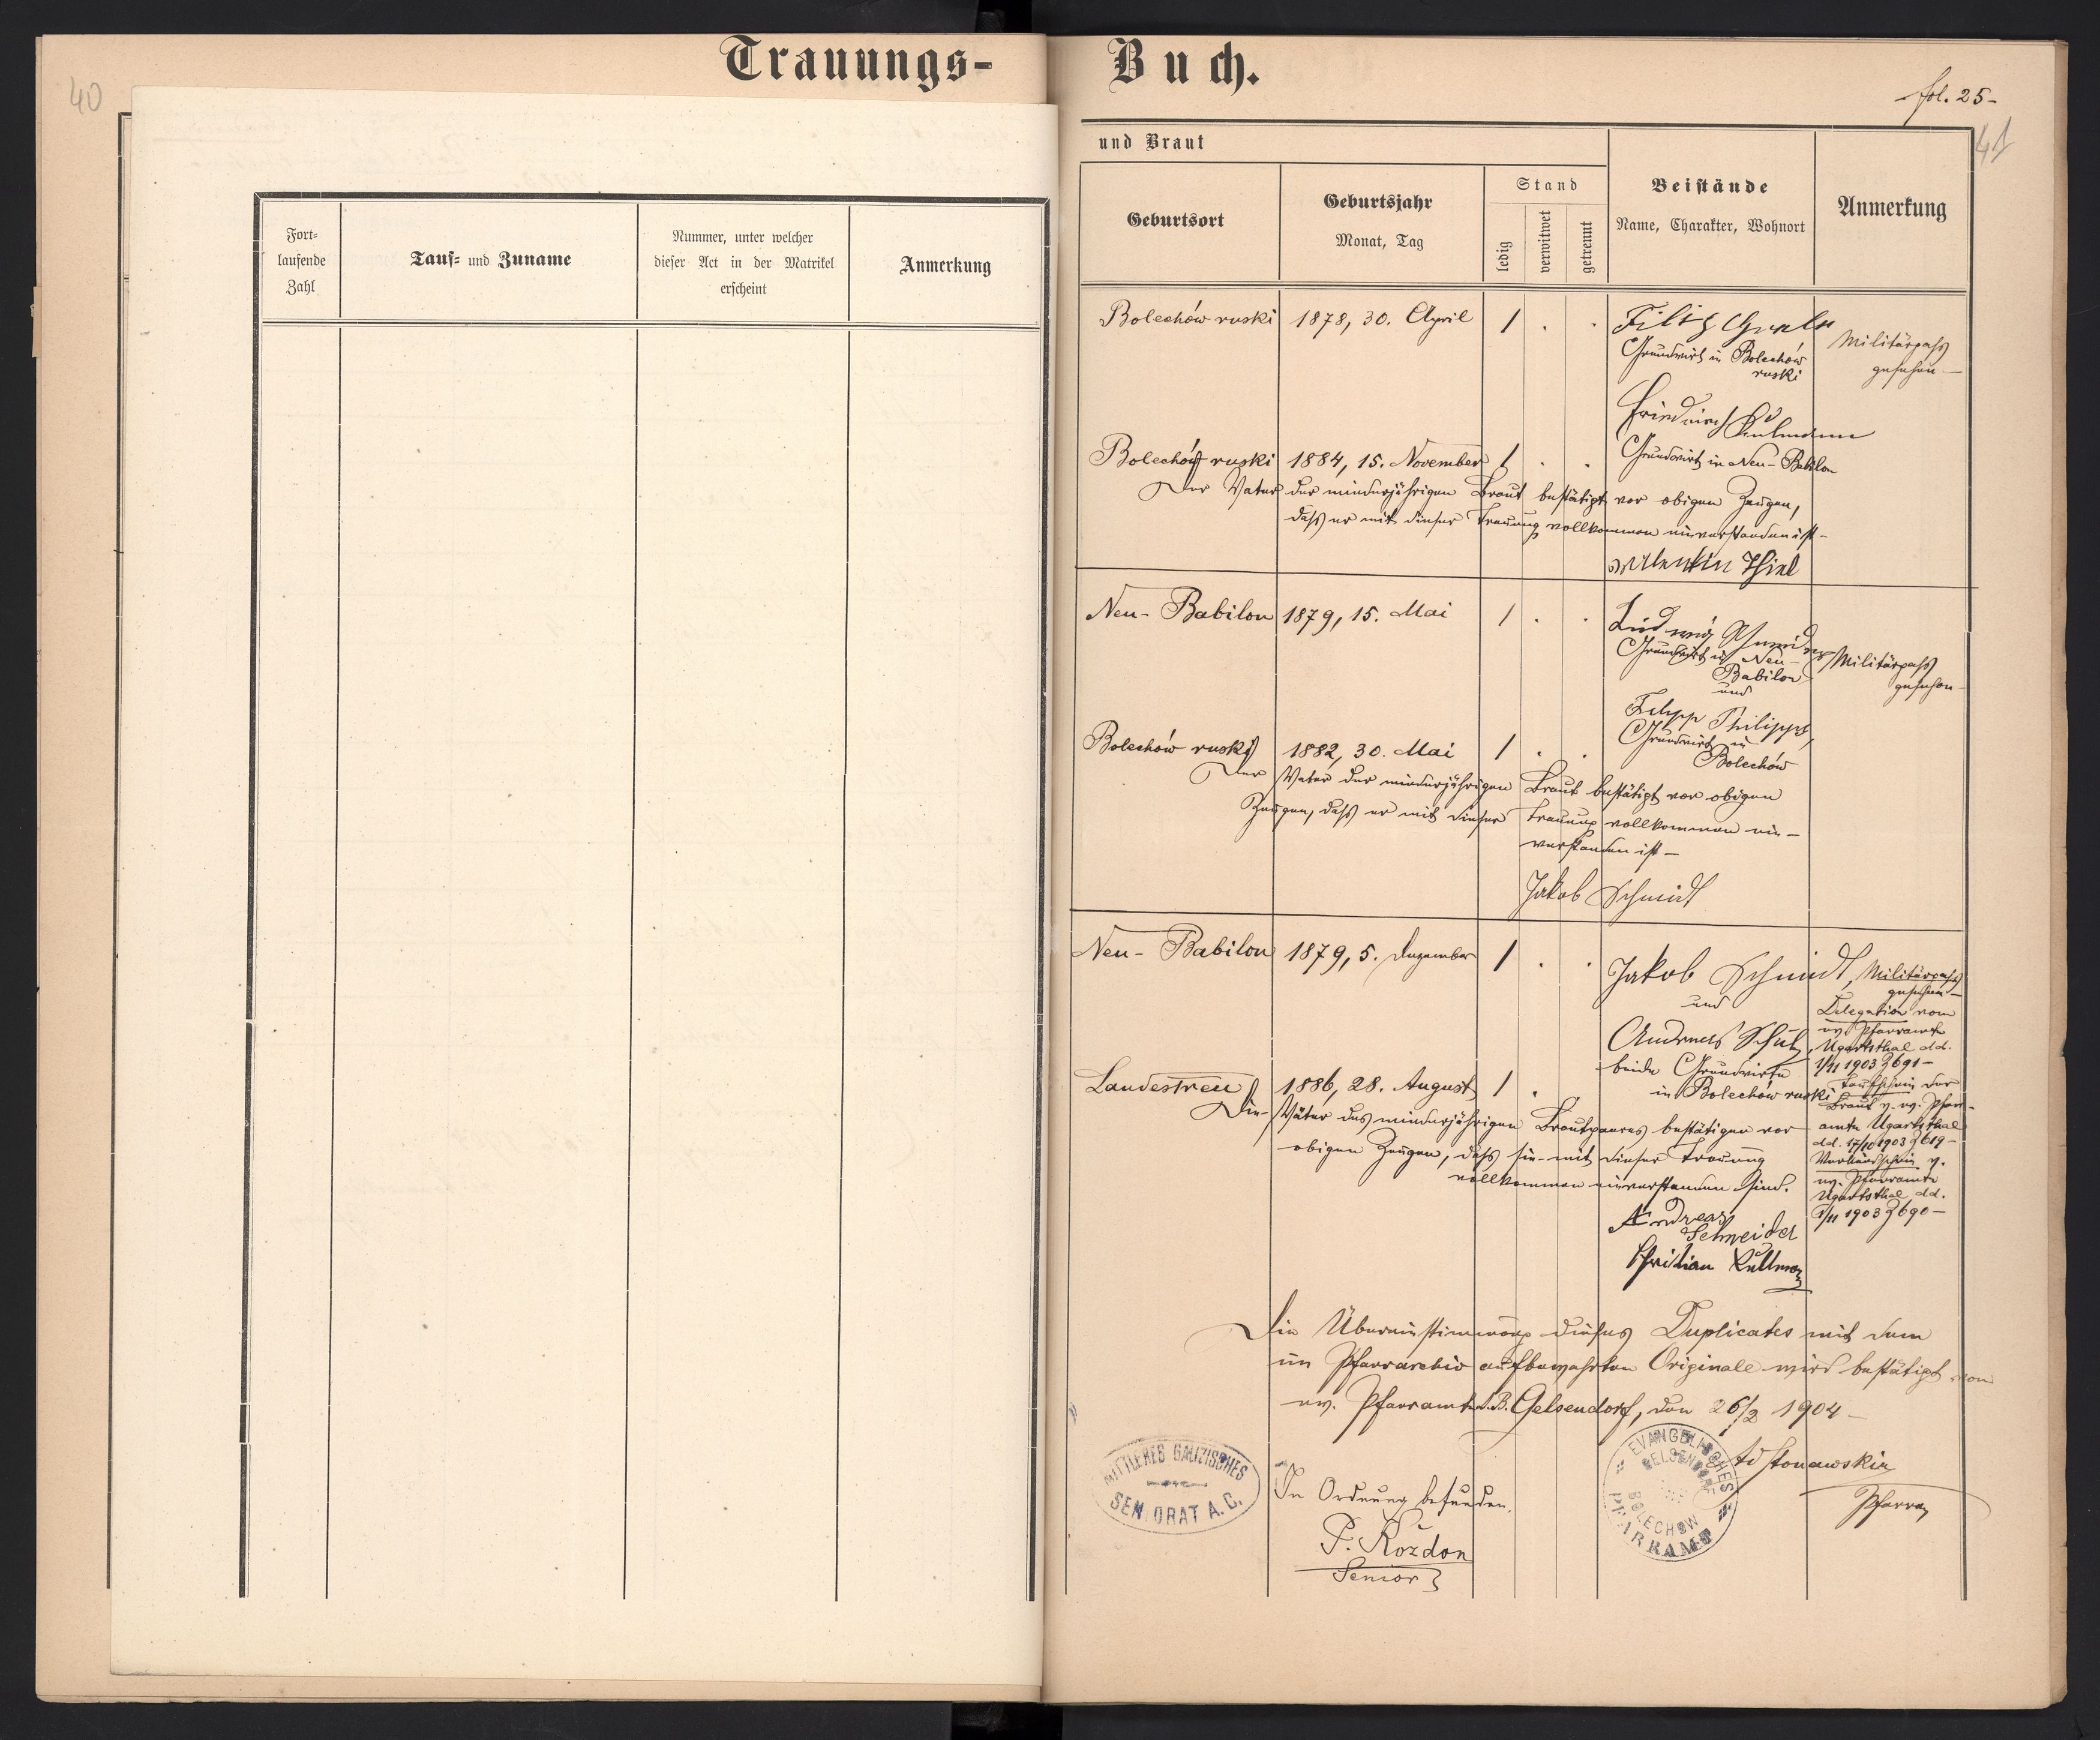 Trauungs-
Buch.
40
fol. 25-
41
Fort-
laufende
Zahl
Tauf- und Zuname
Nummer, unter welcher
dieser Act in der Matrikel
erscheint
Anmerkung
und Braut
Geburtsort
Geburtsjahr
Monat, Tag
Stand
ledig
verwitwet
getrennt
Beistände
Name, Charakter, Wohnort
Anmerkung
Bolechów ruski 1878, 30. April 1 . .
Grundwirt in Bolechów
ruski
Militärpass
gesehen —
Friedrich
Bolechów ruski 1884, 15. November 1 . .
Grundwirt in Neu-Babilon
Der Vater der minderjährigen Braut bestätigt vor obigen Zeugen,
dass er mit dieser Trauung vollkommen einverstanden ist -
Valentin Thiel
Neu-Babilon 1879, 15. Mai 1 . .
Ludwig Schneider
Grundwirt in Neu-
Babilon
und
Militärpass
gesehen -
Filipp Philipps,
Grundwirt in
Bolechów
Bolechów ruski 1882, 30. Mai 1 . .
Der Vater der minderjährigen Braut bestätigt vor obigen
Zeugen, dass er mit dieser Trauung vollkommen ein-
verstanden ist —
Jakob Schmidt
Neu-Babilon 1879, 5. Dezember 1 . .
Jakob Schmidt,
und
Andreas Schulz,
beide Grundwirte
in Bolechów ruski
Militärpass
gesehen —
Delegation vom
ev. Pfarramte
Ugartsthal dd.
1/11 1903 Z 691 —
Taufschein der
Braut v. ev. Pfarr-
amte Ugartsthal
dd. 17/10 1903 Z 619 -
Verkündschein v.
ev. Pfarramte
Ugartsthal dd.
1/11 1903 Z 690 —
Landestreu 1886, 28. August 1 .
Die Väter des minderjährigen Brautpaares bestätigen vor
obigen Zeugen, dass sie mit dieser Trauung
vollkommen einverstanden sind.
Andreas
Schneider
Christian Kullman
Die Übereinstimmung dieses Duplicates mit dem
im Pfarrarchiv aufbewahrten Originale wird bestätigt vom
ev. Pfarramte A.B. Gelsendorf, den 26/2 1904 —
MITTLERES GALIZISCHES
SENIORAT A.C.
In Ordnung befunden.
P. Rozdon
Senior
EVANGELISCHES
GELSENDORF
BOLECHOW
PFARRAMT
Pfarrer